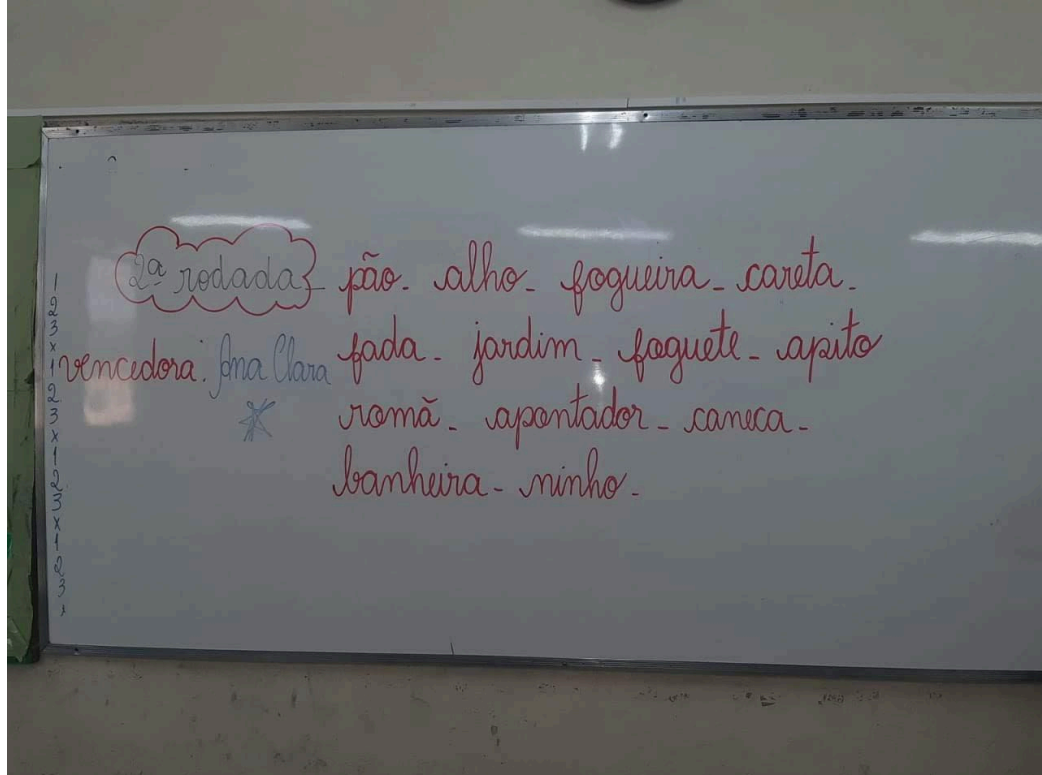 2ª rodada - pão - alho - fogueira - careta -
vencedora: Ana Clara fada - jardim - foguete - apito
romã - apontador - caneca -
banheira - ninho -
1
2
3
x
1
2
3
x
1
2
3
x
1
2
3
x